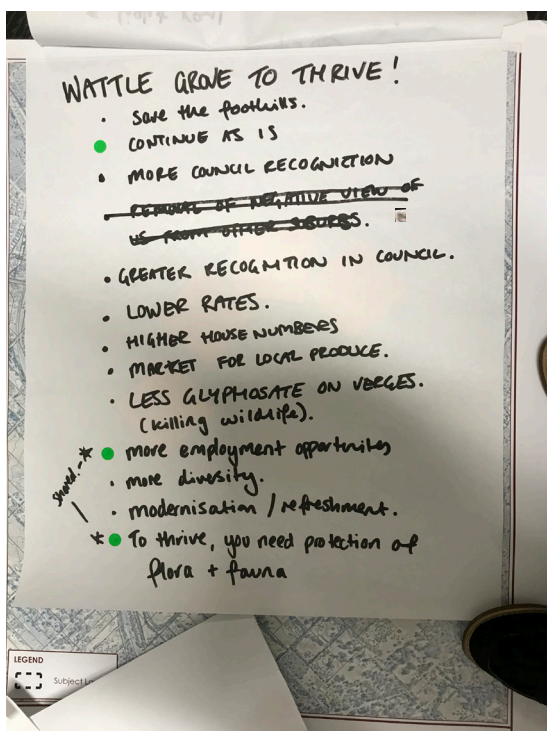 WATTLE GROVE TO THRIVE!
• Save the foothills.
CONTINUE AS IS
• MORE COUNCIL RECOGNICTION
REMOVAL OF NEGATIVE VIEW OF
US FROM OTHER SUBURBS.
• GREATER RECOGNITION IN COUNCIL.
• LOWER RATES.
• HIGHER HOUSE NUMBERS
• MARKET FOR LOCAL PRODUCE.
• LESS GLYPHOSATE ON VERGES.
(killing wildlife).
* more employment opportunites
• more diversity.
shared.
• modernisation / refreshment.
* To thrive, you need protection of
flora + fauna
LEGEND
Subject